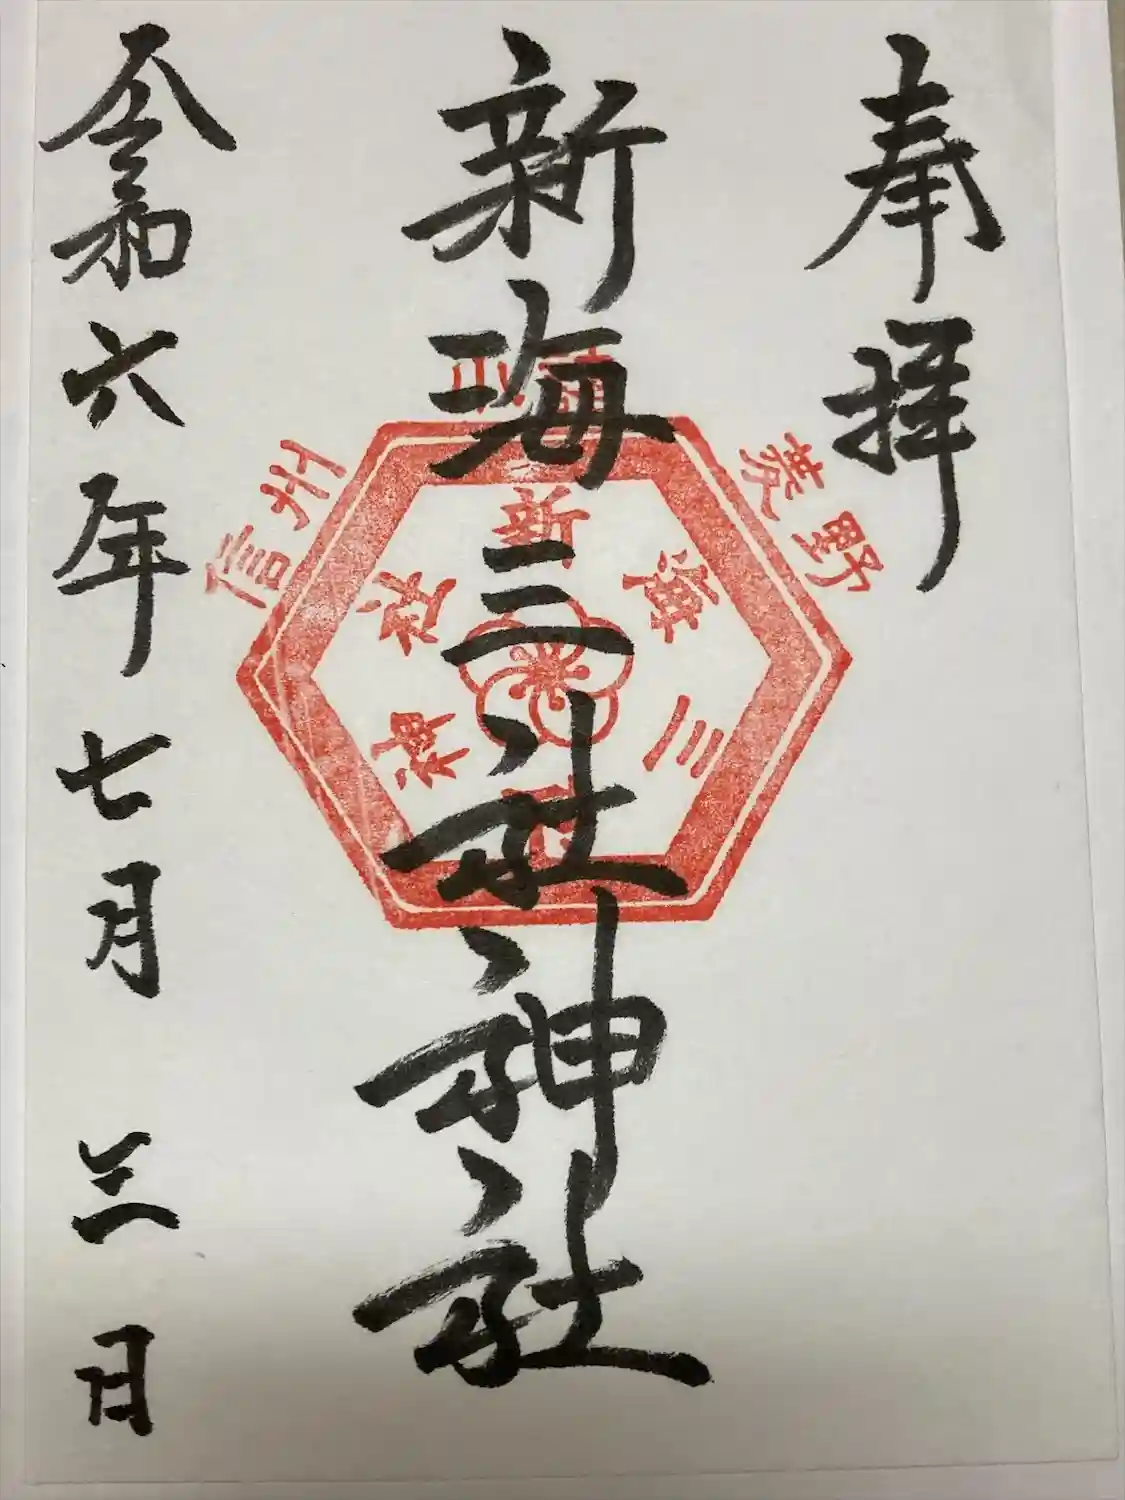 奉拝
新海三社神社
令和六年七月三日
新海三社神社
信州